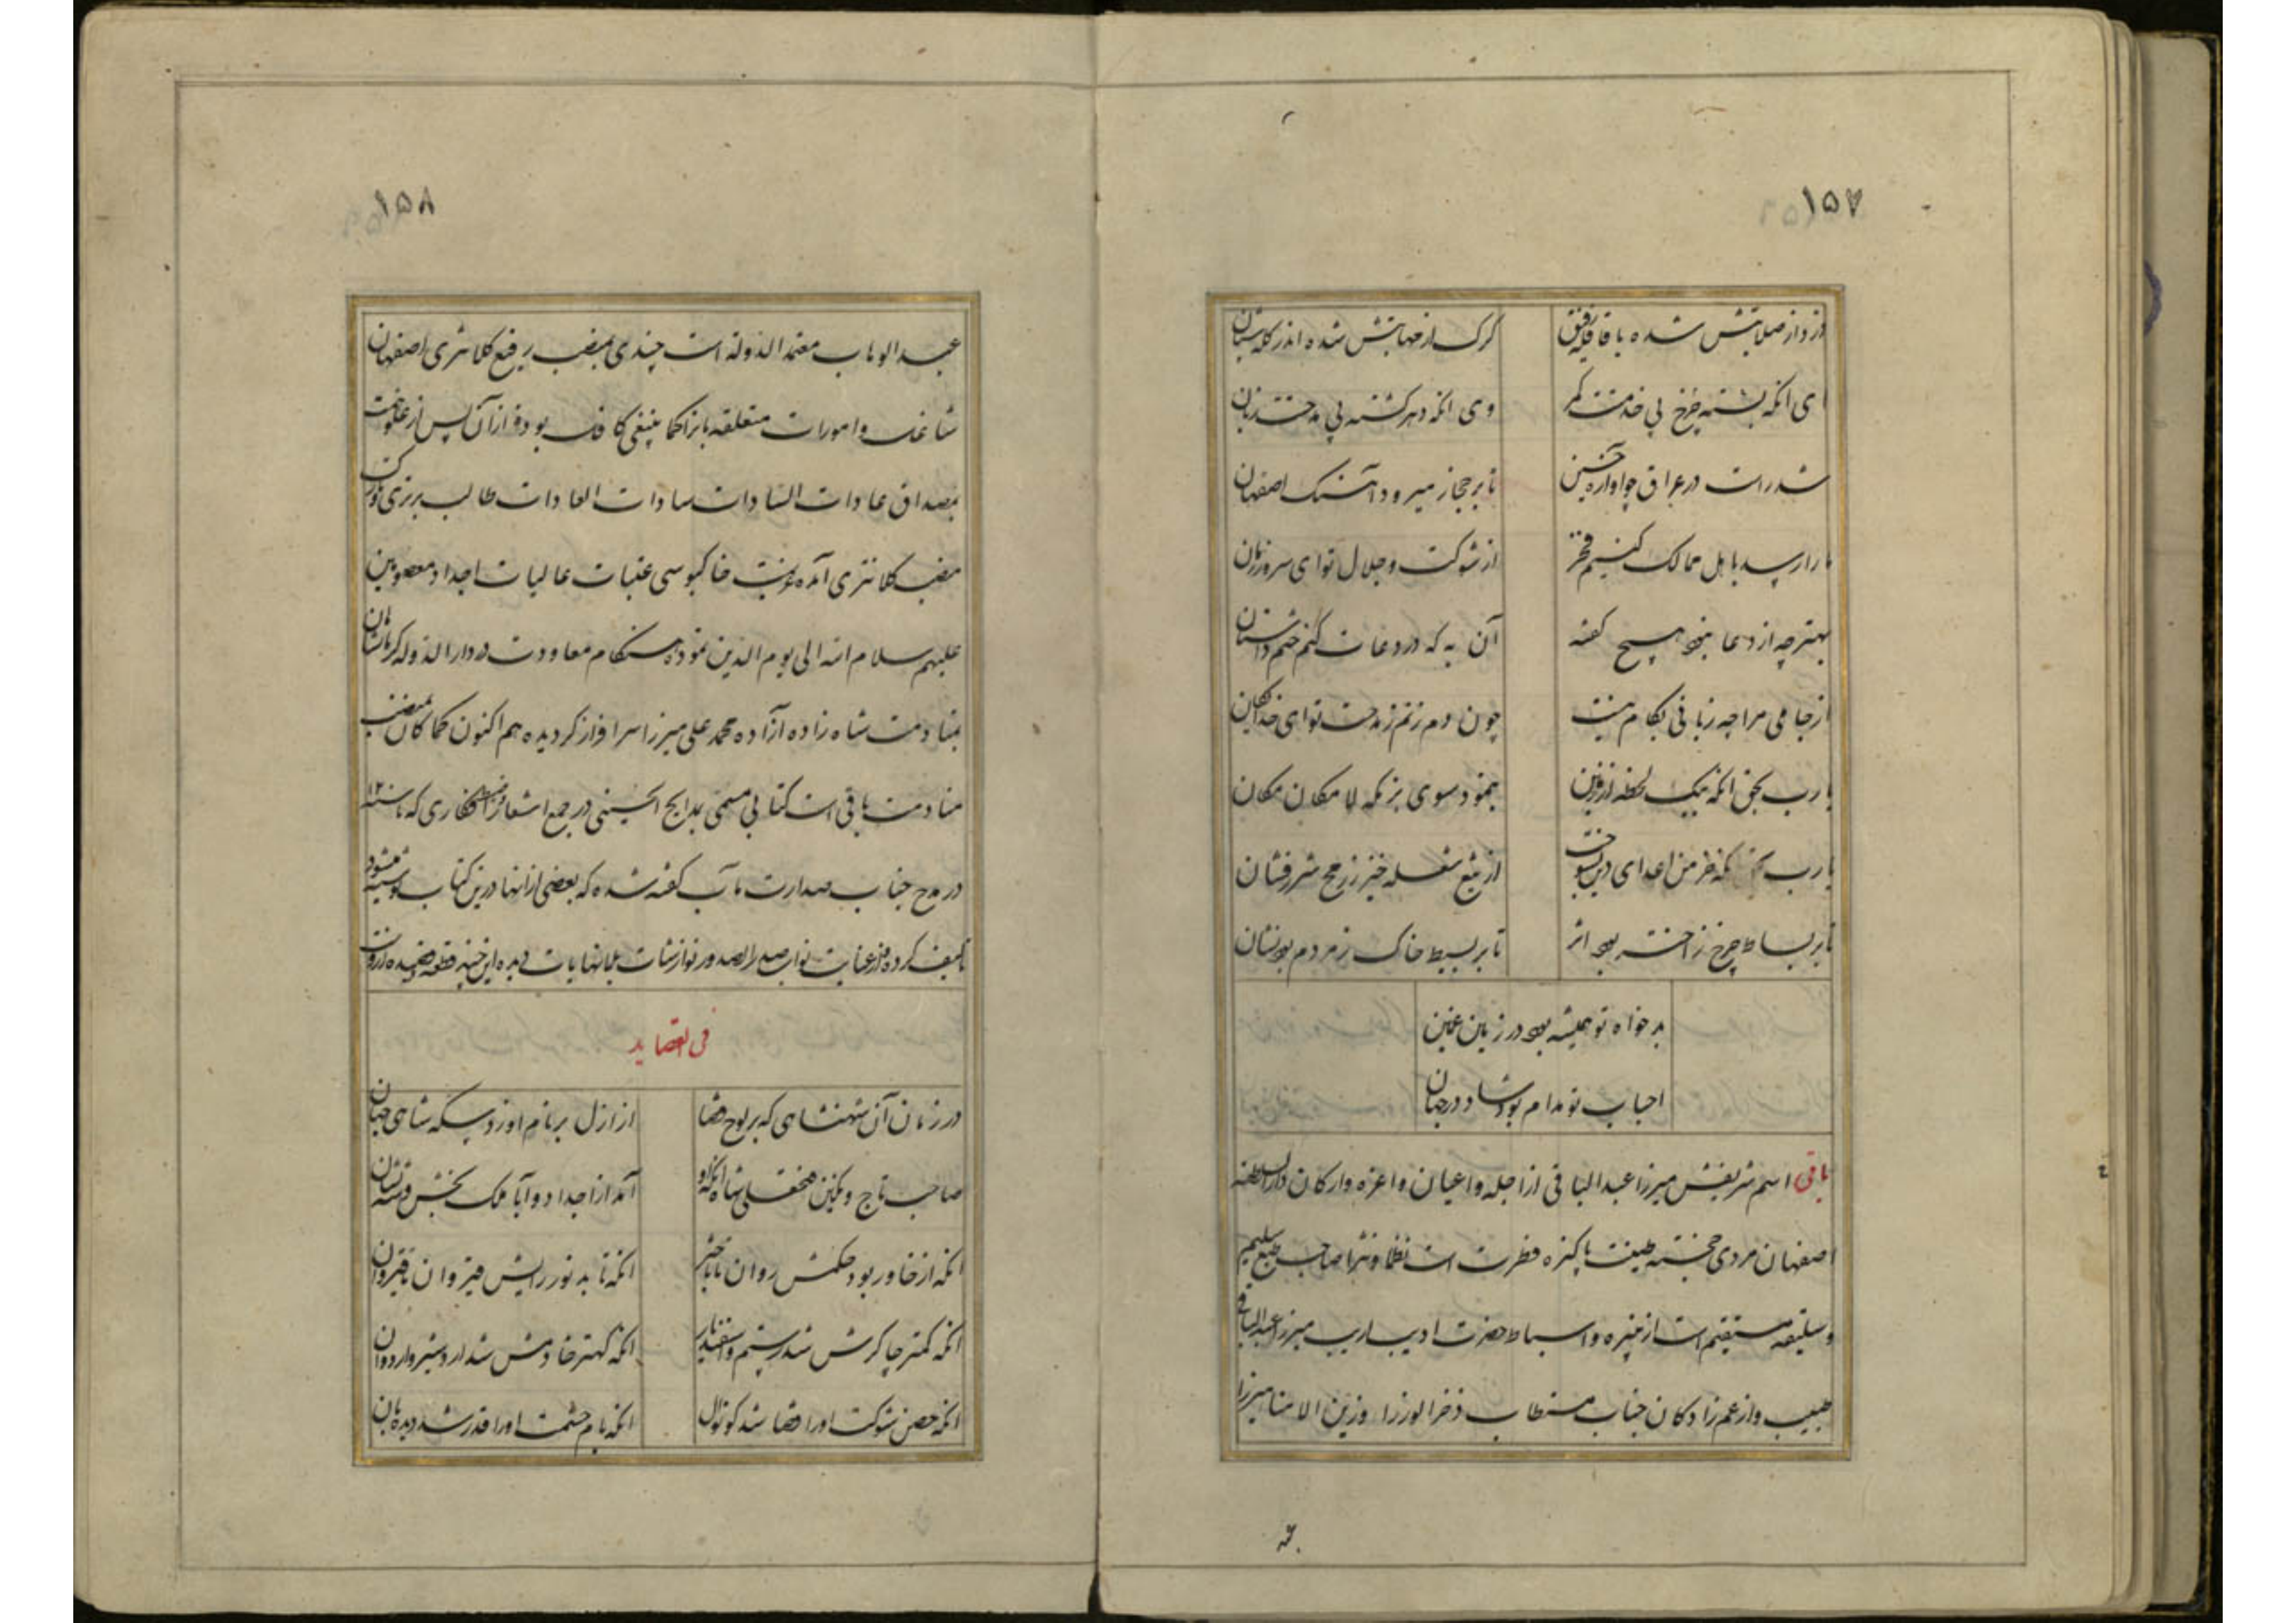 ۱۵۷
دزد از صلابتش شده با قافله رفیق
گرگ از مهابتش شده اندر گله شبان
ای انکه بسته چرخ پی خدمتت کمر
وی انکه دهر گشته پی مدحتت زبان
شد راست در عراق چو آوازه حسین
تا بر حجاز میرود آهنگ اصفهان
ما را رسد باهل ممالک کنیم فخر
از شوکت و جلال تو ای سرور زمان
بهتر چه از دعا نبود هیچ گفته
آن به که در دعات کنم ختم داستان
از جامی مرا چه زبانی بکام نیست
چون دم زنم ز مدحت تو ای خدایگان
یا رب بحق انکه بیک لحظه از زمین
بنمود سوی بزمگه لا مکان مکان
یا رب که خرمن اعدای دین بسوخت
از تیغ شعله خیز ز رمح شررفشان
تا بر بساط چرخ ز اختر بود اثر
تا بر بسیط خاک ز مردم بود نشان
بدخواه تو همیشه بود در زمین غمین
احباب تو مدام بود شاد در جهان
باقی اسم شریفش میرزا عبدالباقی از اجله و اعیان و اعزه و ارکان دارالسلطنه
اصفهان مردی خجسته طینت پاکیزه فطرت است نظما و نثرا صاحب طبع سلیم
و سلیقه مستقیم است از نبیره و اسباط حضرت ادیب اریب میرزا عبدالباقی
طبیب و از عم زادگان جناب مستطاب فخر الوزرا و زین الامنا میرزا
۱۵۸
عبدالوهاب معتمد الدوله است چندی بمنصب رفیع کلانتری اصفهان
شاغل و امورات متعلقه بانرا کما ینبغی کافل بوده از آن پس از علو همت
بمصداق عادات السادات سادات العادات طالب برتری و تارک
منصب کلانتری آمده بنیت خاکبوسی عتبات عالیات اجداد معصومین
علیهم سلام الله الی یوم الدین نموده هنگام معاودت در دارالدوله کرمانشاهان
بمنادمت شاه زاده آزاده محمد علی میرزا سرافراز گردیده هم اکنون کماکان بمنصب
منادمت باقی است کتابی مسمی بمدایح الحسینی در جمع اشعار که تا سنه
در مدح جناب صدارت مآب گفته شده که بعضی از انها درین کتاب نوشته میشود
تالیف کرده و از عنایت نواب صدر الصدور نوازشات بلانهایات دیده این چند قطعه و قصیده از اوست
فی القصاید
در زمان آن شهنشاهی که بر لوح قضا
از ازل بر نام او زد سکه شاهی جهان
صاحب تاج و نگین فتحعلی شاه انکه او
آمد از اجداد و آبا ملک بخش و شه نشان
انکه از خاور بود حکمش روان تا باختر
انکه تابد نور رایش قیروان تا قیروان
انکه کمتر چاکرش شد رستم و اسفندیار
انکه کهتر خادمش شد اردشیر و اردوان
انکه حصن شوکت او را قضا شد کوتوال
انکه بام حشمت او را قدر شد دیده بان